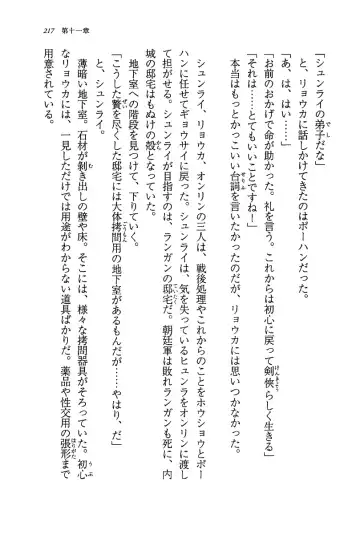 217　第十一章
「シュンライの弟子だな」
と、リョウカに話しかけてきたのはボーハンだった。
「あ、は、はい……」
「お前のおかげで命が助かった。礼を言う。これからは初心に戻って剣俠らしく生きる」
「それは……とてもいいことですね！」
本当はもっとかっこいい台詞を言いたかったのだが、リョウカには思いつかなかった。
シュンライ、リョウカ、オンリンの三人は、戦後処理やこれからのことをホウショウとボー
ハンに任せてギョウサイに戻った。シュンライは、気を失っているヒュンラをオンリンに渡し
て担がせる。シュンライが目指すのは、ランガンの邸宅だ。朝廷軍は敗れランガンも死に、内
城の邸宅はもぬけの殻となっていた。
地下室への階段を見つけて、下りていく。
「こうした贅を尽くした邸宅には大体拷問用の地下室があるもんだが……やはり、だ」
と、シュンライ。
薄暗い地下室。石材が剥き出しの壁や床。そこには、様々な拷問器具がそろっていた。初心
なリョウカには、一見しただけでは用途がわからない道具ばかりだ。薬品や性交用の張形まで
用意されている。